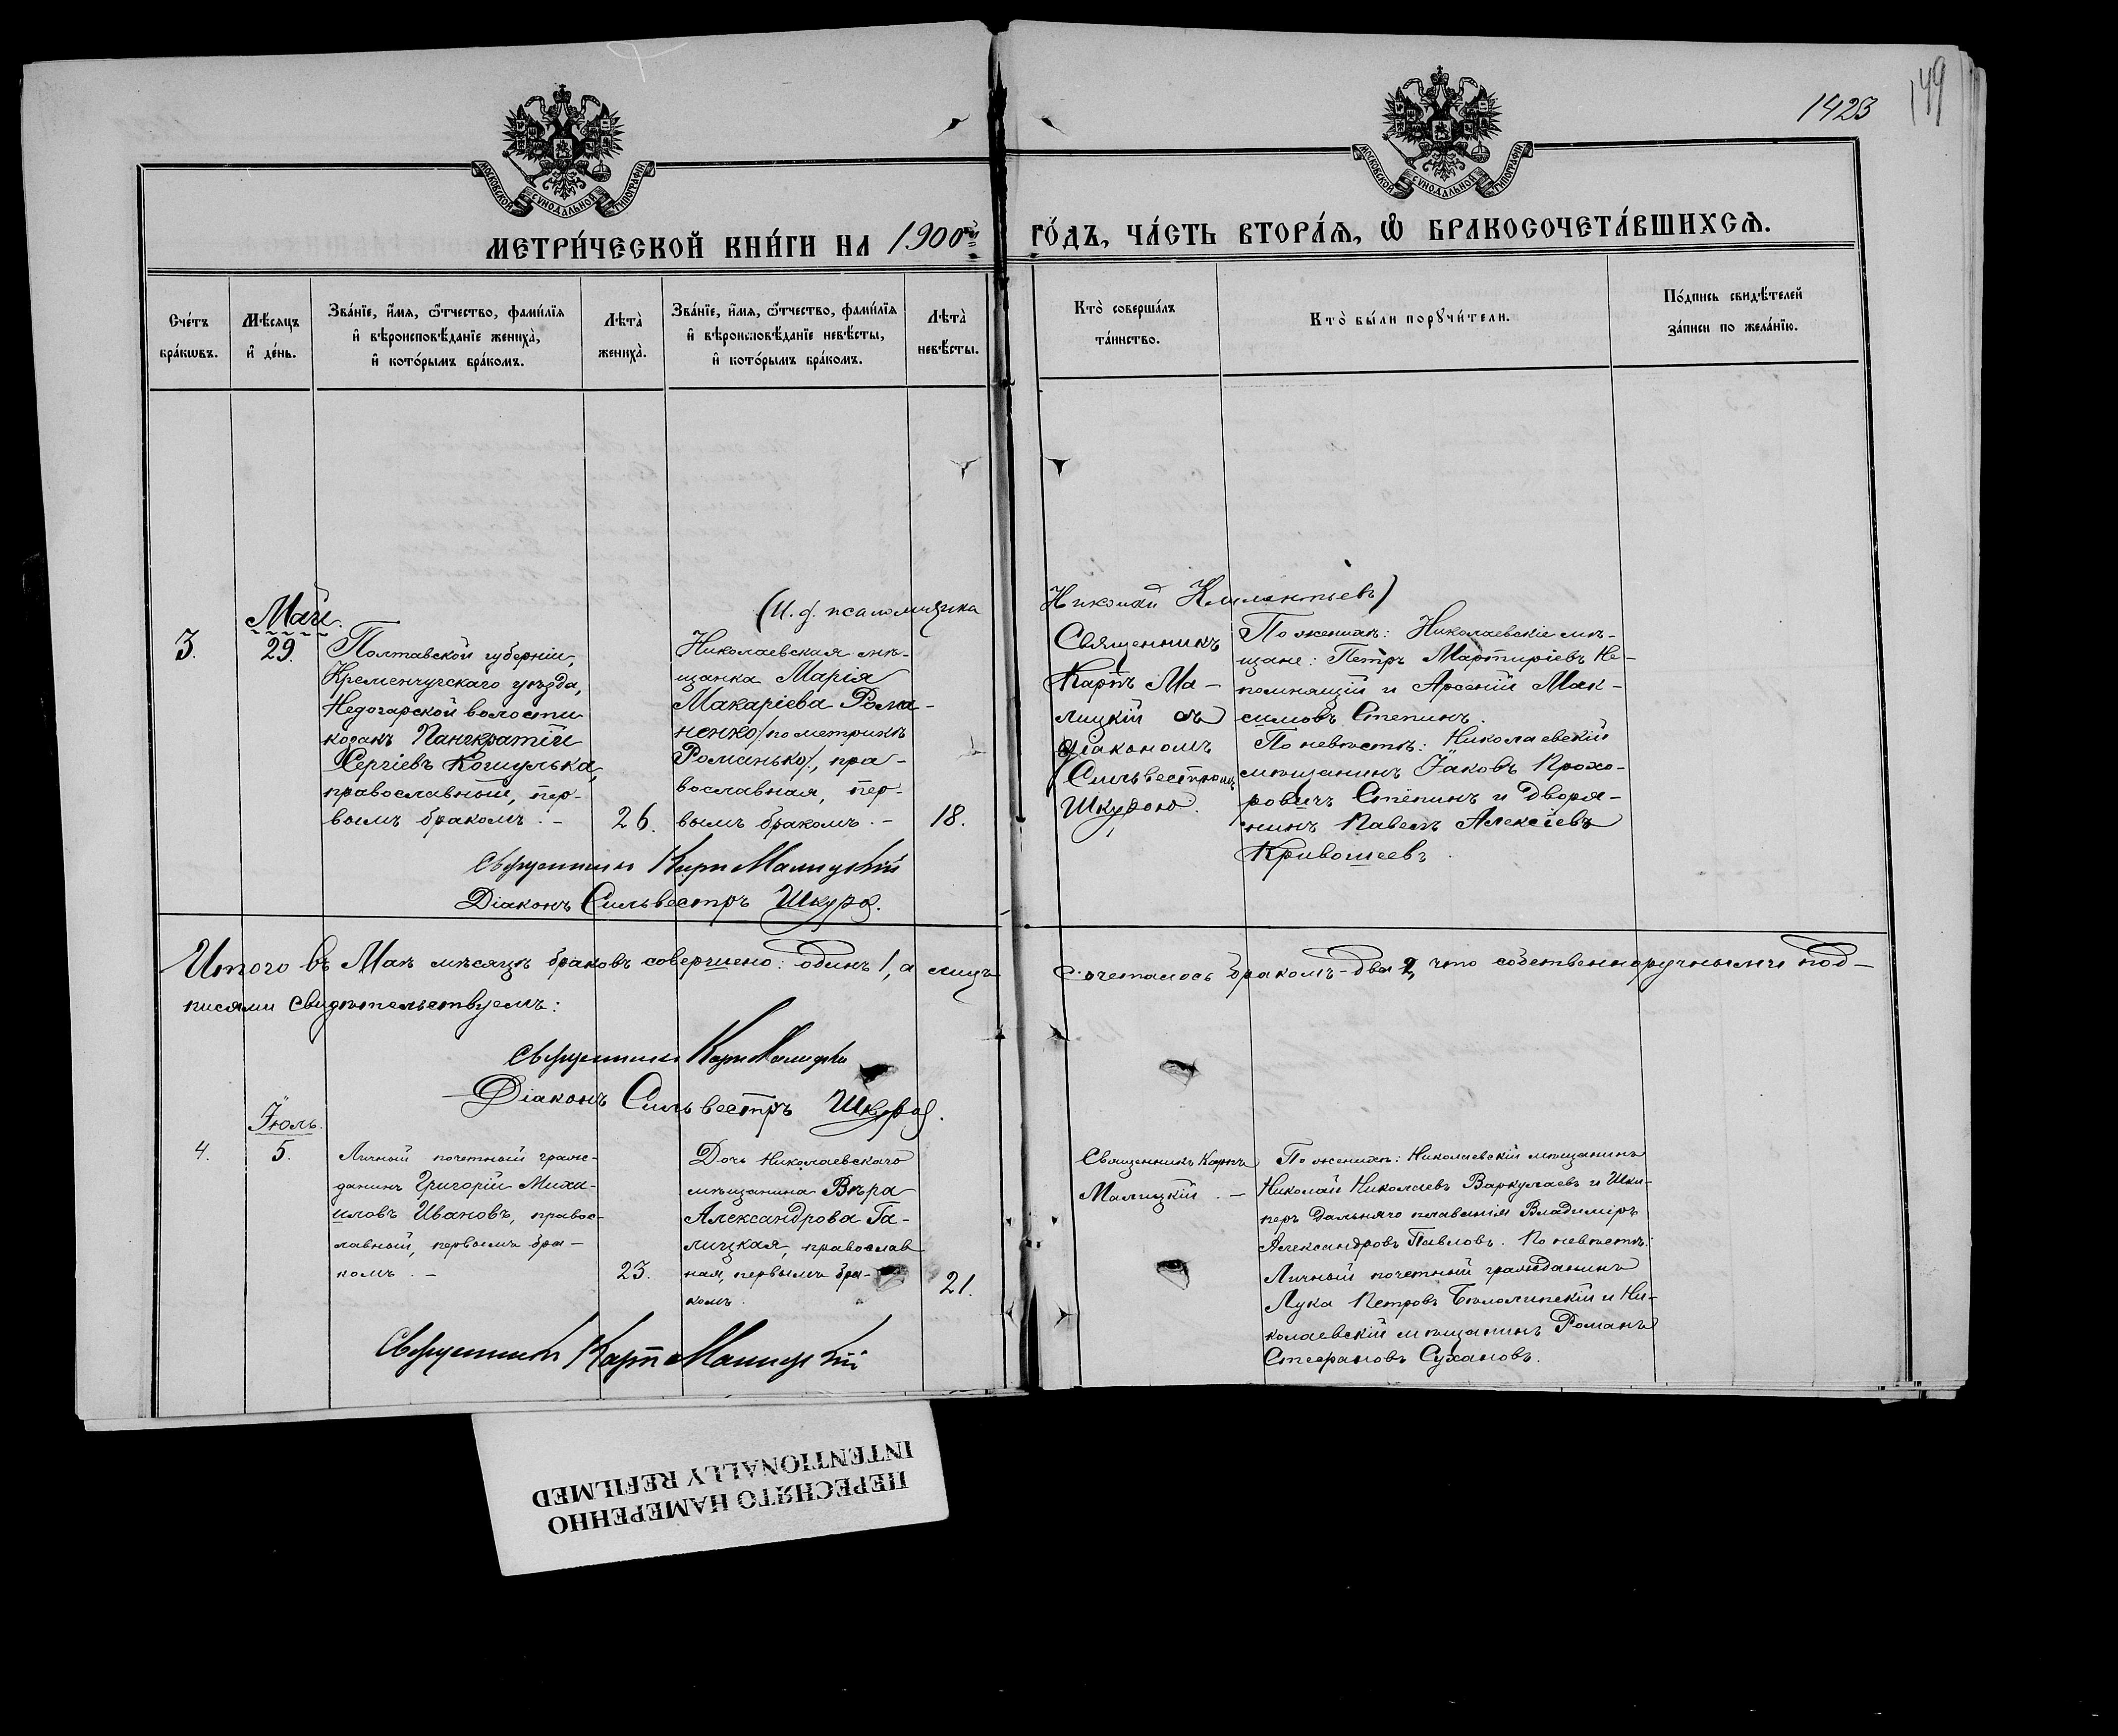 1423
149
МОСКОВСКОЙ СѴНОДАЛЬНОЙ ТИПОГРАФІИ
МОСКОВСКОЙ СѴНОДАЛЬНОЙ ТИПОГРАФІИ
МЕТРИ́ЧЕСКОЙ КНИ́ГИ НА 1900ый ГО́ДЪ, ЧА́СТЬ ВТОРА́Я, Ѡ БРАКОСОЧЕТА́ВШИХСЯ.
Сче́тъ
бра́кωвъ.
Мѣ́сяцъ
и҆ де́нь.
Зва́нїе, и҆́мя, ѻ҆́тчество, фами́лїя
и҆ вѣроисповѣ́данїе жениха̀,
и҆ кото́рымъ бра́комъ.
Лѣ́та̀
жениха̀.
Зва́нїе, и҆́мя, ѻ҆́тчество, фами́лїя
и҆ вѣроисповѣ́данїе невѣ́сты,
и҆ кото́рымъ бра́комъ.
Лѣ́та̀
невѣ́сты.
Кто̀ соверша́лъ
та́инство.
Кто̀ бы́ли порꙋчи́тели.
По́дпись свидѣ́телей
за́писи по жела́нїю.
(И. д. псаломщика Николай Климентьевъ)
Май.
3.
29.
Полтавской губерніи,
Кременчугскаго уѣзда,
Недогарской волости
козакъ Панкратій
Сергіевъ Кошулька,
православный, пер-
вымъ бракомъ. –
26.
Николаевская мѣ-
щанка Марія
Макаріева Рома-
ненко /по метрикѣ
Романько/, пра-
вославная, пер-
вымъ бракомъ. –
18.
Священникъ
Карпъ Ма-
лицкій съ
діакономъ
Сильвестромъ
Шкурою.
По женихѣ: Николаевскіе мѣ-
щане: Петръ Мартиріевъ Не-
помнящій и Арсеній Мак-
симовъ Степинъ.
По невѣстѣ: Николаевскій
мѣщанинъ Іаковъ Прохо-
ровичъ Степинъ и дворя-
нинъ Павелъ Алексѣевъ
Кривошеевъ.
Священникъ Карпъ Малицкій
Діаконъ Сильвестръ Шкура.
Итого въ Маѣ мѣсяцѣ браковъ совершено: одинъ 1, а лицъ сочеталось бракомъ – два 2, что собственноручными под-
писями свидѣтельствуемъ:
Священникъ Карпъ Малицкій
Діаконъ Сильвестръ Шкура.
Іюль.
4.
5.
Личный почетный граж-
данинъ Григорій Миха-
иловъ Ивановъ, правос-
лавный, первымъ бра-
комъ. –
23.
Дочь Николаевскаго
мѣщанина Вѣра
Александрова Га-
лицкая, православ
ная, первымъ бра-
комъ.
21.
Священникъ Карпъ
Малицкій. –
По женихѣ: Николаевскій мѣщанинъ
Николай Николаевъ Варкулаевъ и Шки-
перъ дальняго плаванія Владиміръ
Александровъ Павловъ. По невѣстѣ:
Личный почетный гражданинъ
Лука Петровъ Бѣлолипскій и Ни-
колаевскій мѣщанинъ Романъ
Стефановъ Сухановъ.
Священникъ Карпъ Малицкій
ПЕРЕСНЯТО НАМЕРЕННО
INTENTIONALLY REFILMED